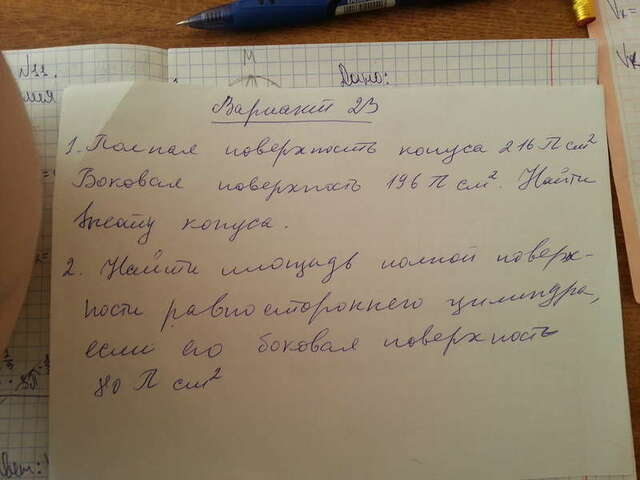 №11.
М
Дано:
Вариант 23
1. Полная поверхность конуса 216 П см²
Боковая поверхность 196 П см². Найти
высоту конуса.
2. Найти площадь полной поверх-
ности равностороннего цилиндра,
если его боковая поверхность
80 П см²